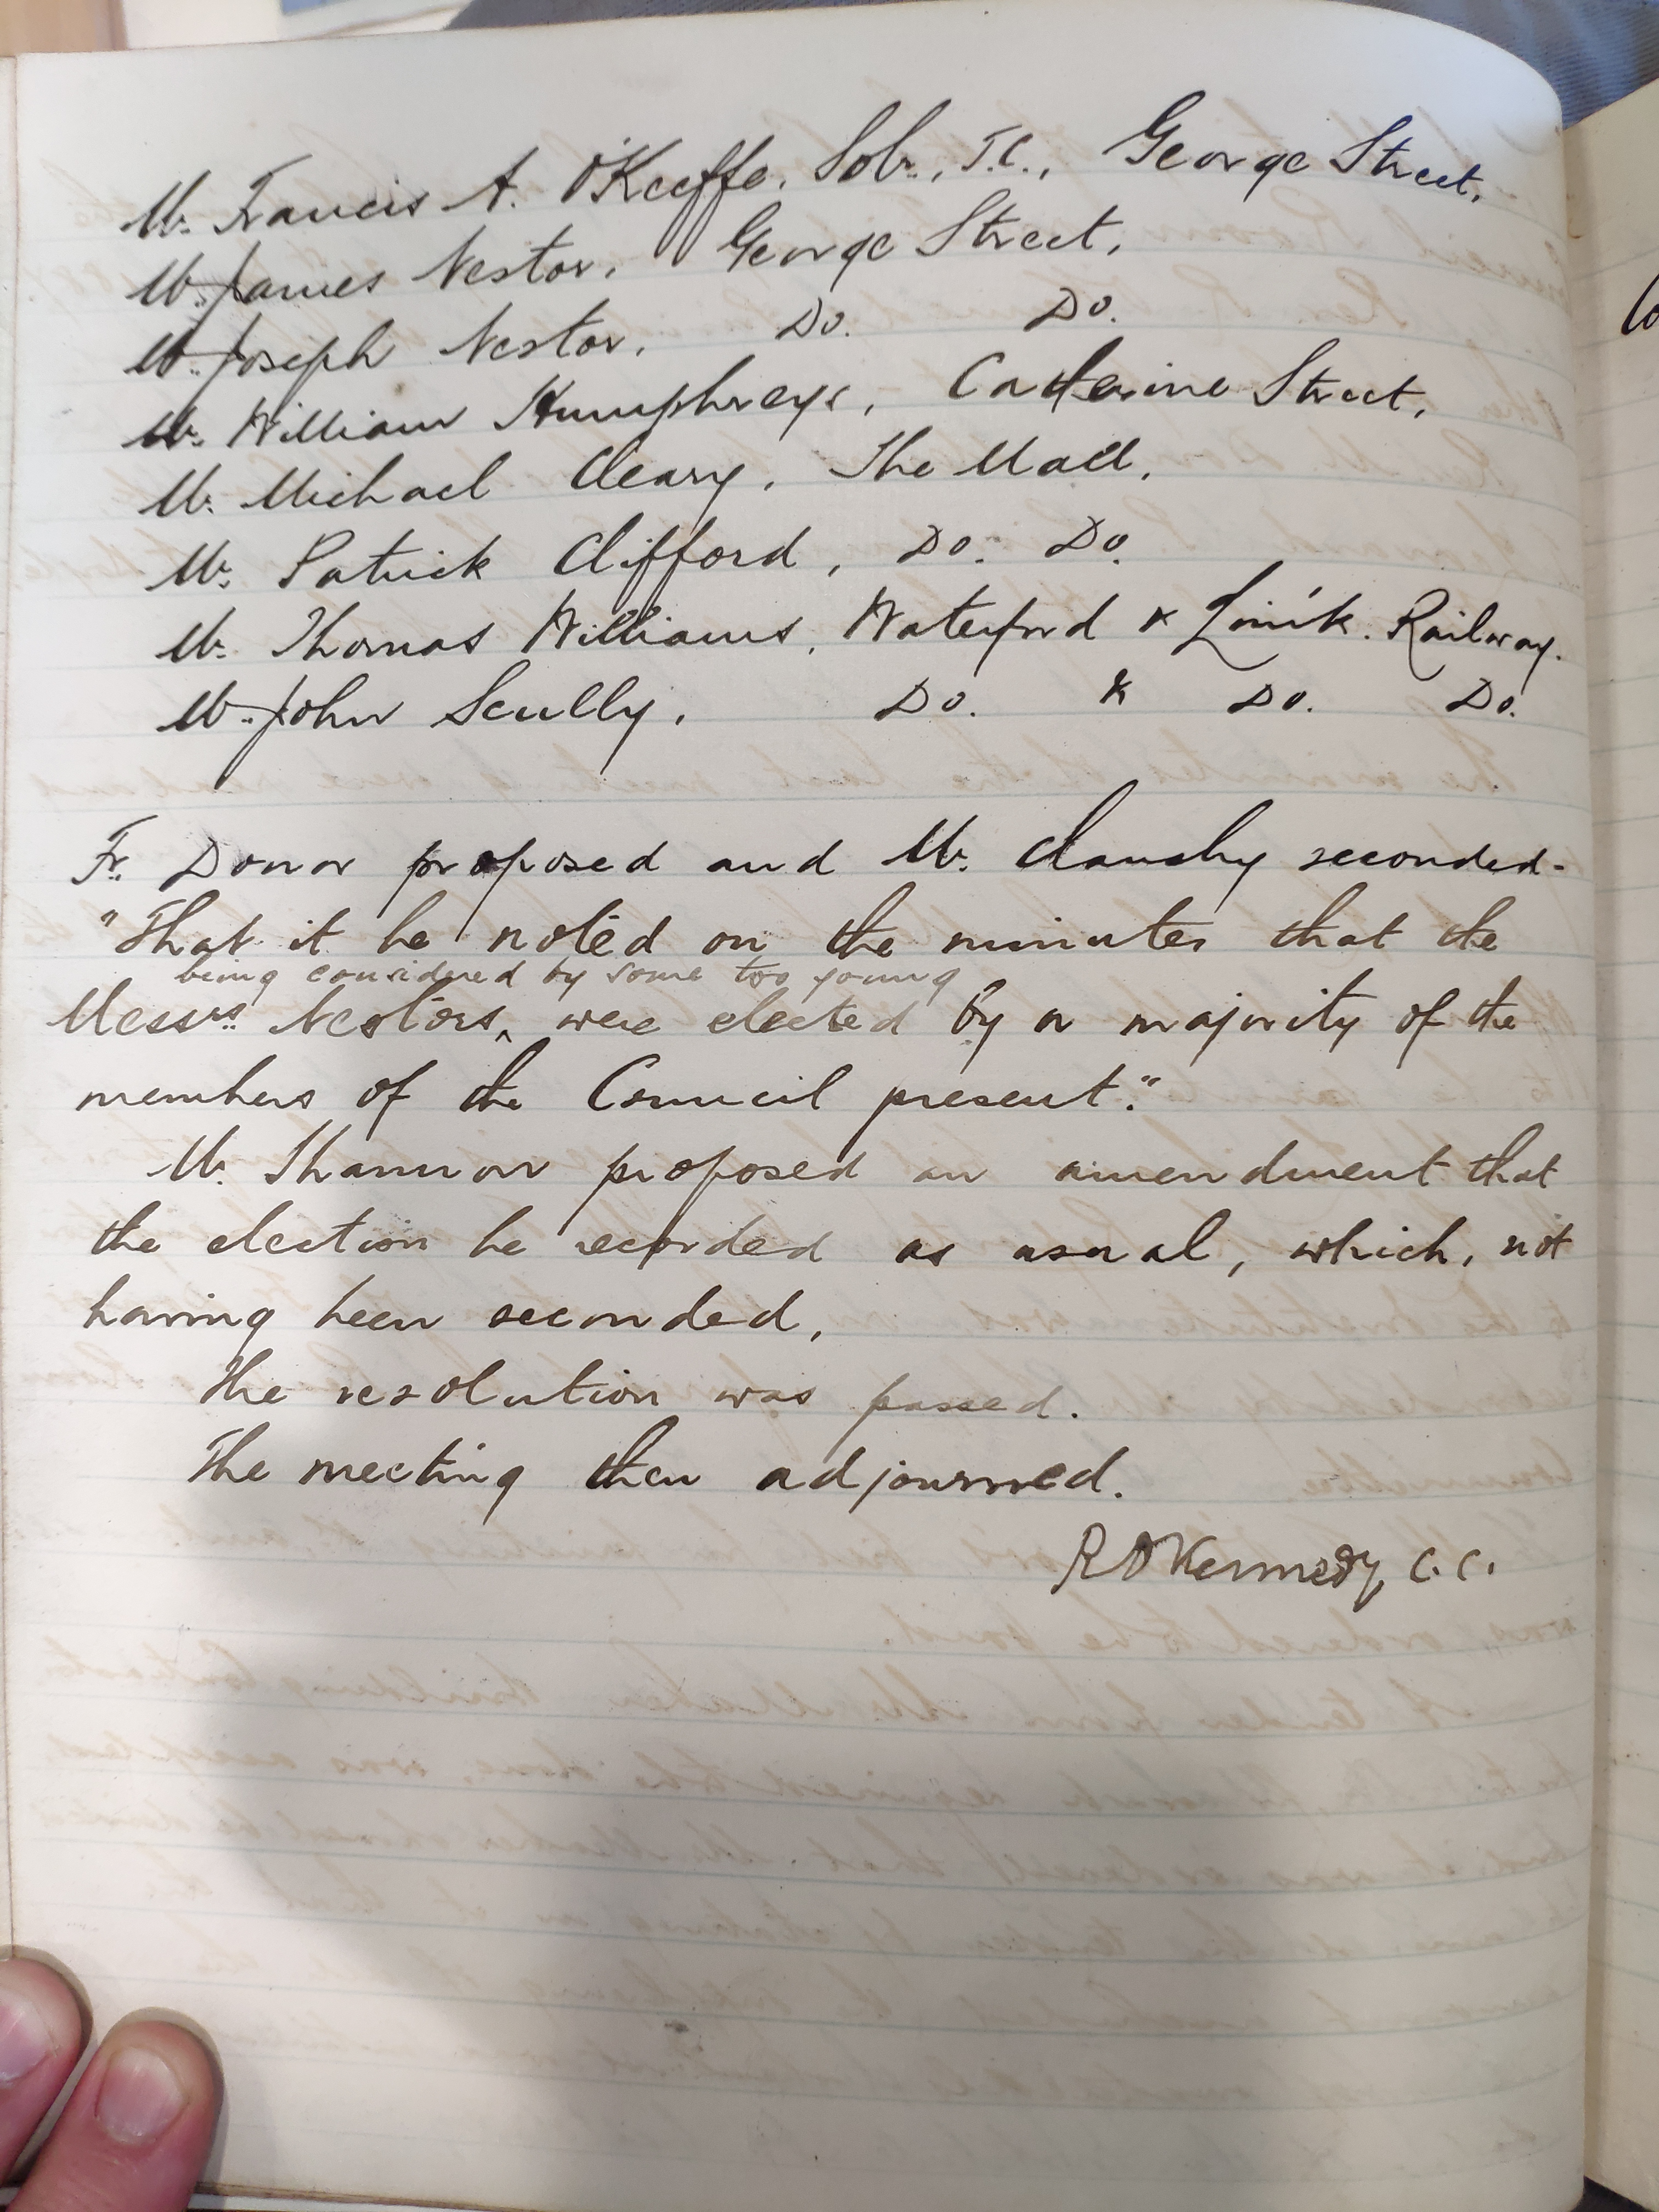 Mr. Francis A. O'Keeffe, Solr., T.C., George Street,
Mr. James Nestor, George Street,
Mr. Joseph Nestor, Do. Do.
Mr. William Humphreys, Catherine Street,
Mr. Michael Cleary, The Mall,
Mr. Patrick Clifford, Do. Do.
Mr. Thomas Williams, Waterford & Lim'k. Railway.
Mr. John Scully, Do. & Do. Do.
Fr. Donor proposed and Mr. Clanchy seconded-
"That it be noted on the minutes that the
being considered by some too young
Messrs. Nestors, ^ were elected by a majority of the
members of the Council present."
Mr. Shannon proposed an amendment that
the election be recorded as usual, which, not
having been seconded,
The resolution was passed.
The meeting then adjourned.
R O'Kennedy, C.C.